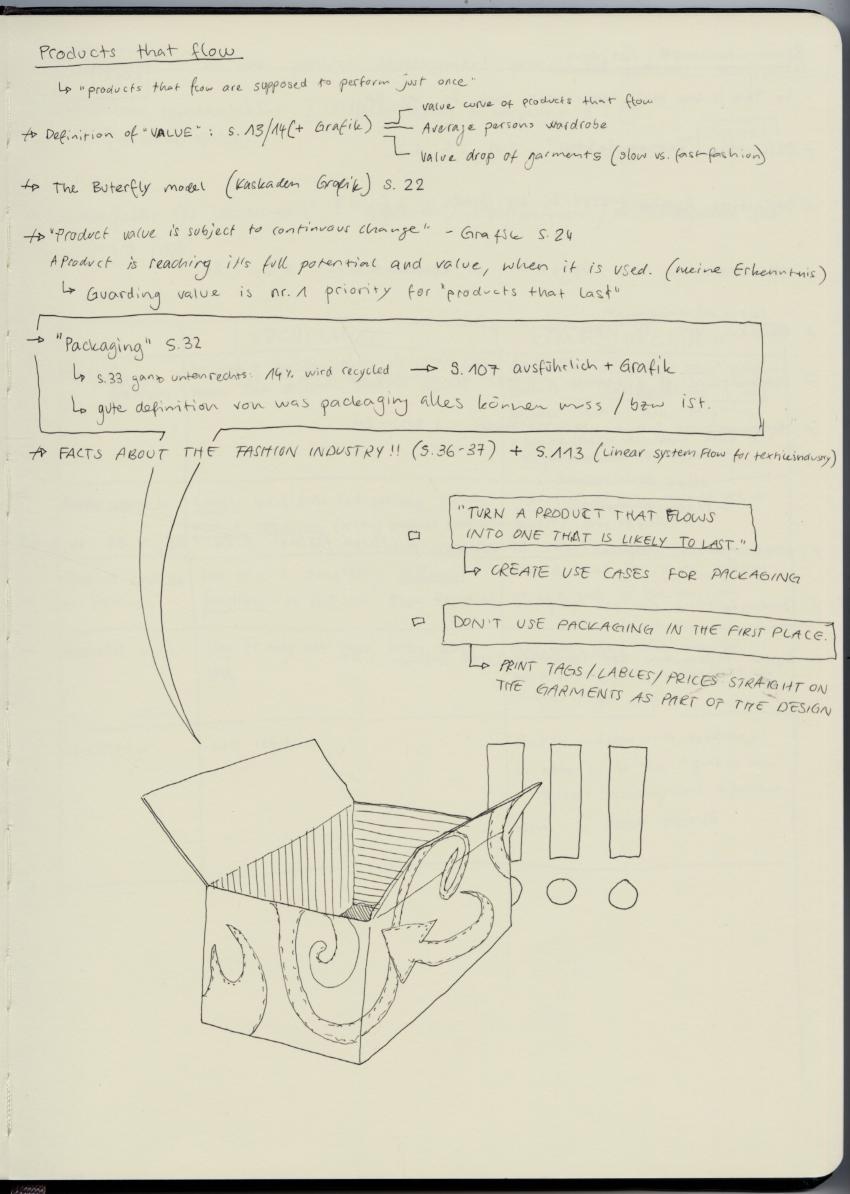 Products that flow
↳ "products that flow are supposed to perform just once"
→ Definition of "VALUE" : S. 13/14 (+ Grafik)
value curve of products that flow
Average persons wardrobe
Value drop of garments (slow vs. fast-fashion)
→ The Buterfly model (Kaskaden Grafik) S. 22
→ "Product value is subject to continuous change" - Grafik S. 24
A Product is reaching it's full potential and value, when it is used. (meine Erkenntnis)
↳ Guarding value is nr. 1 priority for "products that last"
→ "Packaging" S. 32
↳ S.33 ganz unten rechts: 14% wird recycled → S. 107 ausführlich + Grafik
↳ gute definition von was packaging alles können muss / bzw ist.
→ FACTS ABOUT THE FASHION INDUSTRY!! (S. 36-37) + S. 113 (Linear system Flow for textileindustry)
"TURN A PRODUCT THAT FLOWS
INTO ONE THAT IS LIKELY TO LAST."
↳ CREATE USE CASES FOR PACKAGING
DON'T USE PACKAGING IN THE FIRST PLACE.
↳ PRINT TAGS/LABLES/PRICES STRAIGHT ON
THE GARMENTS AS PART OF THE DESIGN
!!!